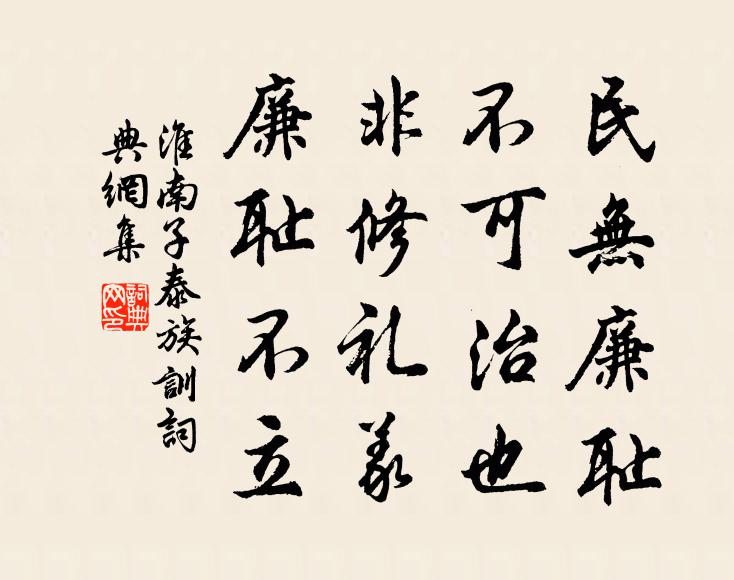 民無廉耻
不可治也
非修礼義
廉耻不立
淮南子泰族訓詞
典網集
詞典
网印